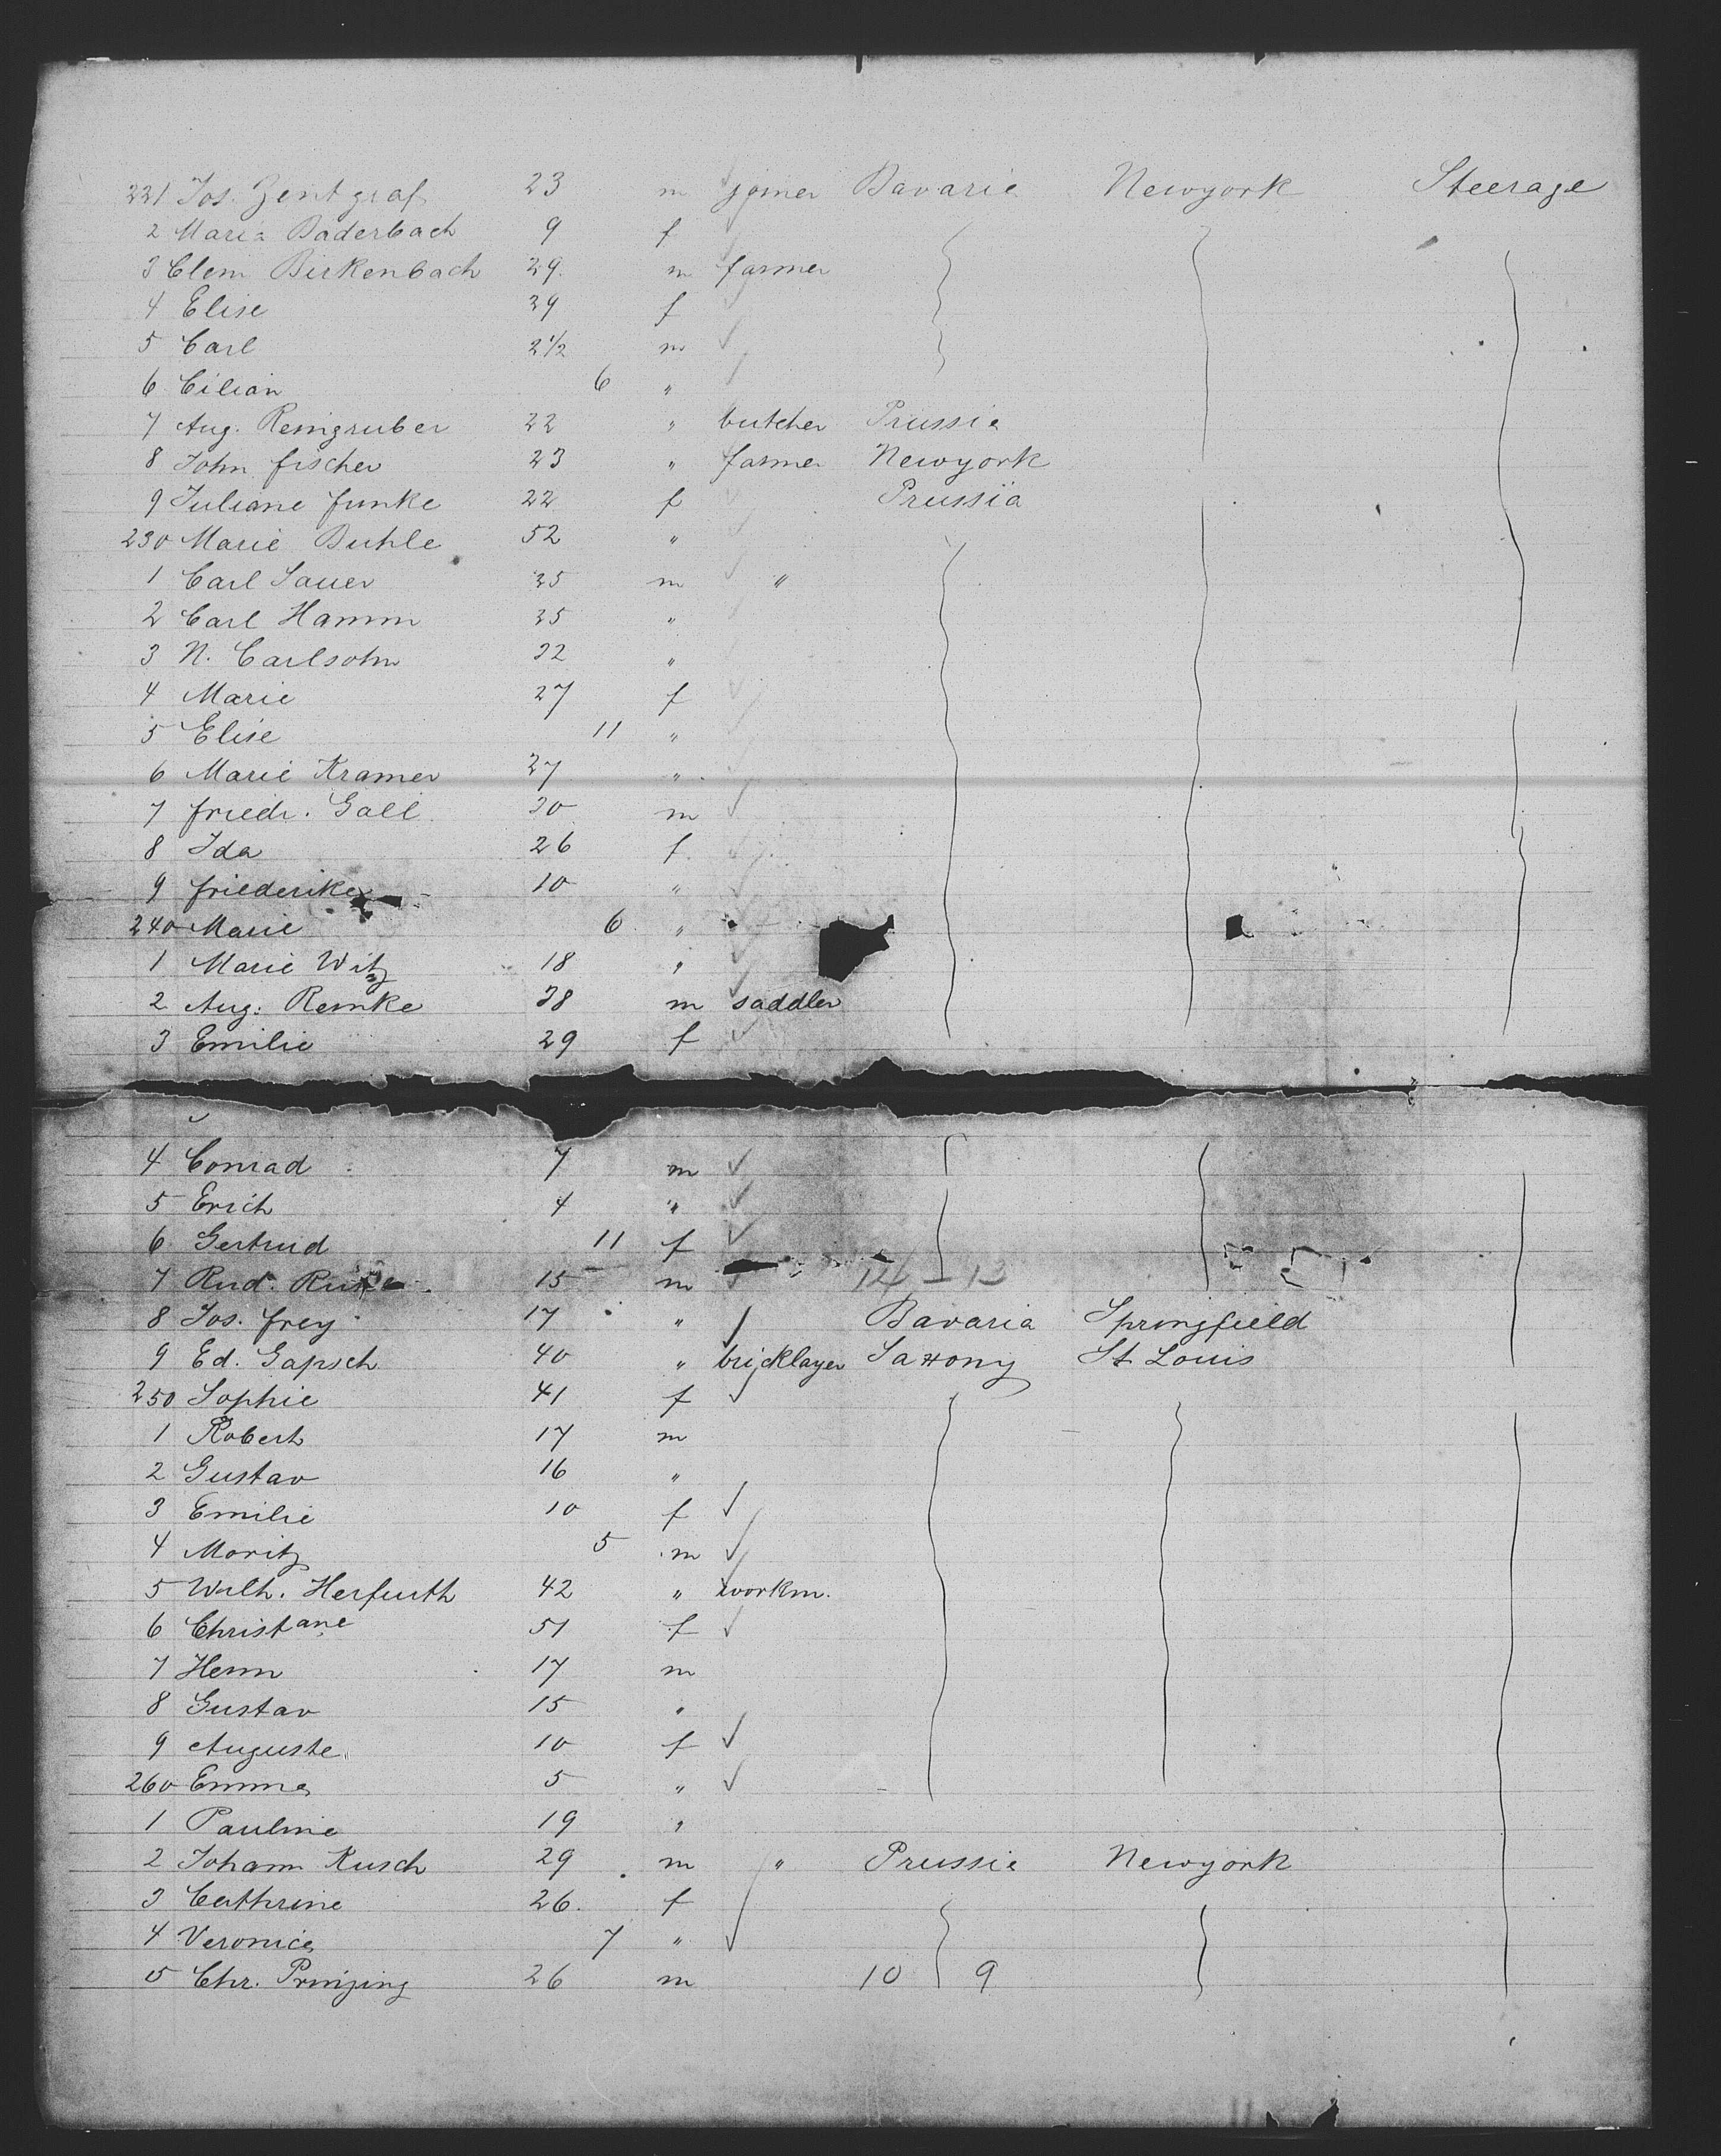 221 Jos. Zentgraf 23 m joiner Bavaria Newyork Steerage
2 Maria Baderbach 9 f
3 Clem Birkenbach 29. m farmer
4 Elise 29 f
5 Carl 2½ m
6 Cilian 6 "
7 Aug. Reingruber 22 " butcher Prussia
8 John fischer 23 " farmer Newyork
9 Juliane funke 22 f Prussia
230 Marie Buhle 52 "
1 Carl Sauer 35 m "
2 Carl Hamm 35 "
3 N. Carlsohn 32 "
4 Marie 27 f
5 Elise 11 "
6 Marie Kramer 27 "
7 friedr. Gall 30 m
8 Ida 26 f
9 friederike 10 "
240 Marie 6 "
1 Marie Witz 18 "
2 Aug. Remke 38 m saddler
3 Emilie 29 f
4 Conrad 7 m
5 Erich 4 "
6 Gertrud 11 f
7 Rud. 15 m 14 – 12
8 Jos. frey 17 " Bavaria Springfield
9 Ed. Gapsch 40 " bricklayer Saxony St Louis
250 Sophie 41 f
1 Robert 17 m
2 Gustav 16 "
3 Emilie 10 f
4 Moritz 5 m
5 Wilh. Herfurth 42 " workm.
6 Christane 51 f
7 Herm 17 m
8 Gustav 15 "
9 Auguste 10 f
260 Emma 5 "
1 Pauline 19 "
2 Johann Rusch 29 m " Prussia Newyork
3 Cathrine 26. f
4 Veronica 7 "
5 Chr. Prinzing 26 m 10 9